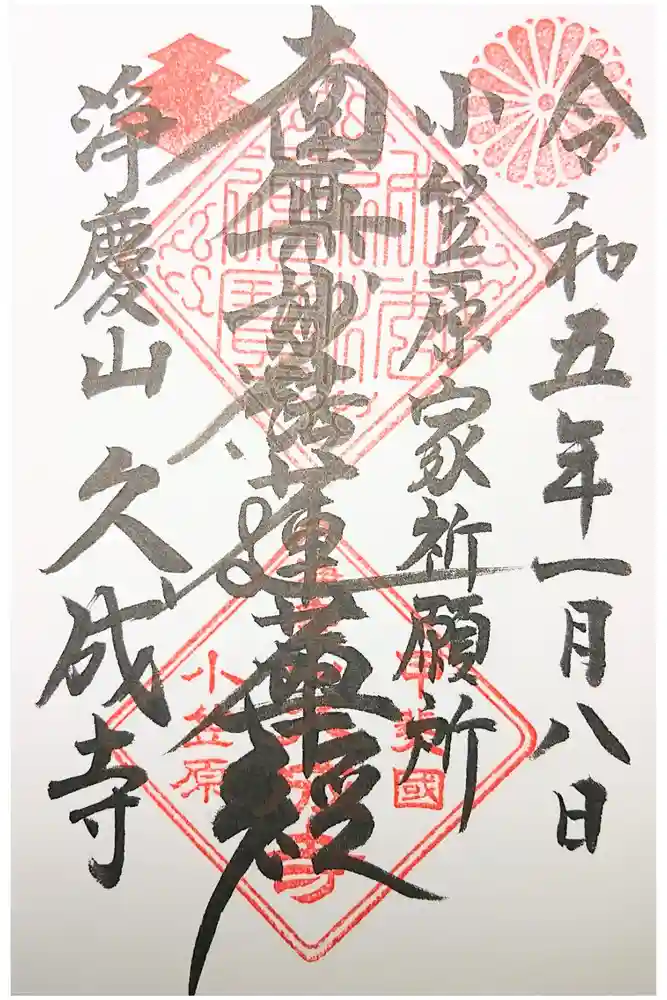 令和五年一月八日
小笠原家祈願所
南無妙法蓮華経
浄慶山 久成寺
甲斐國
久成寺
小笠原